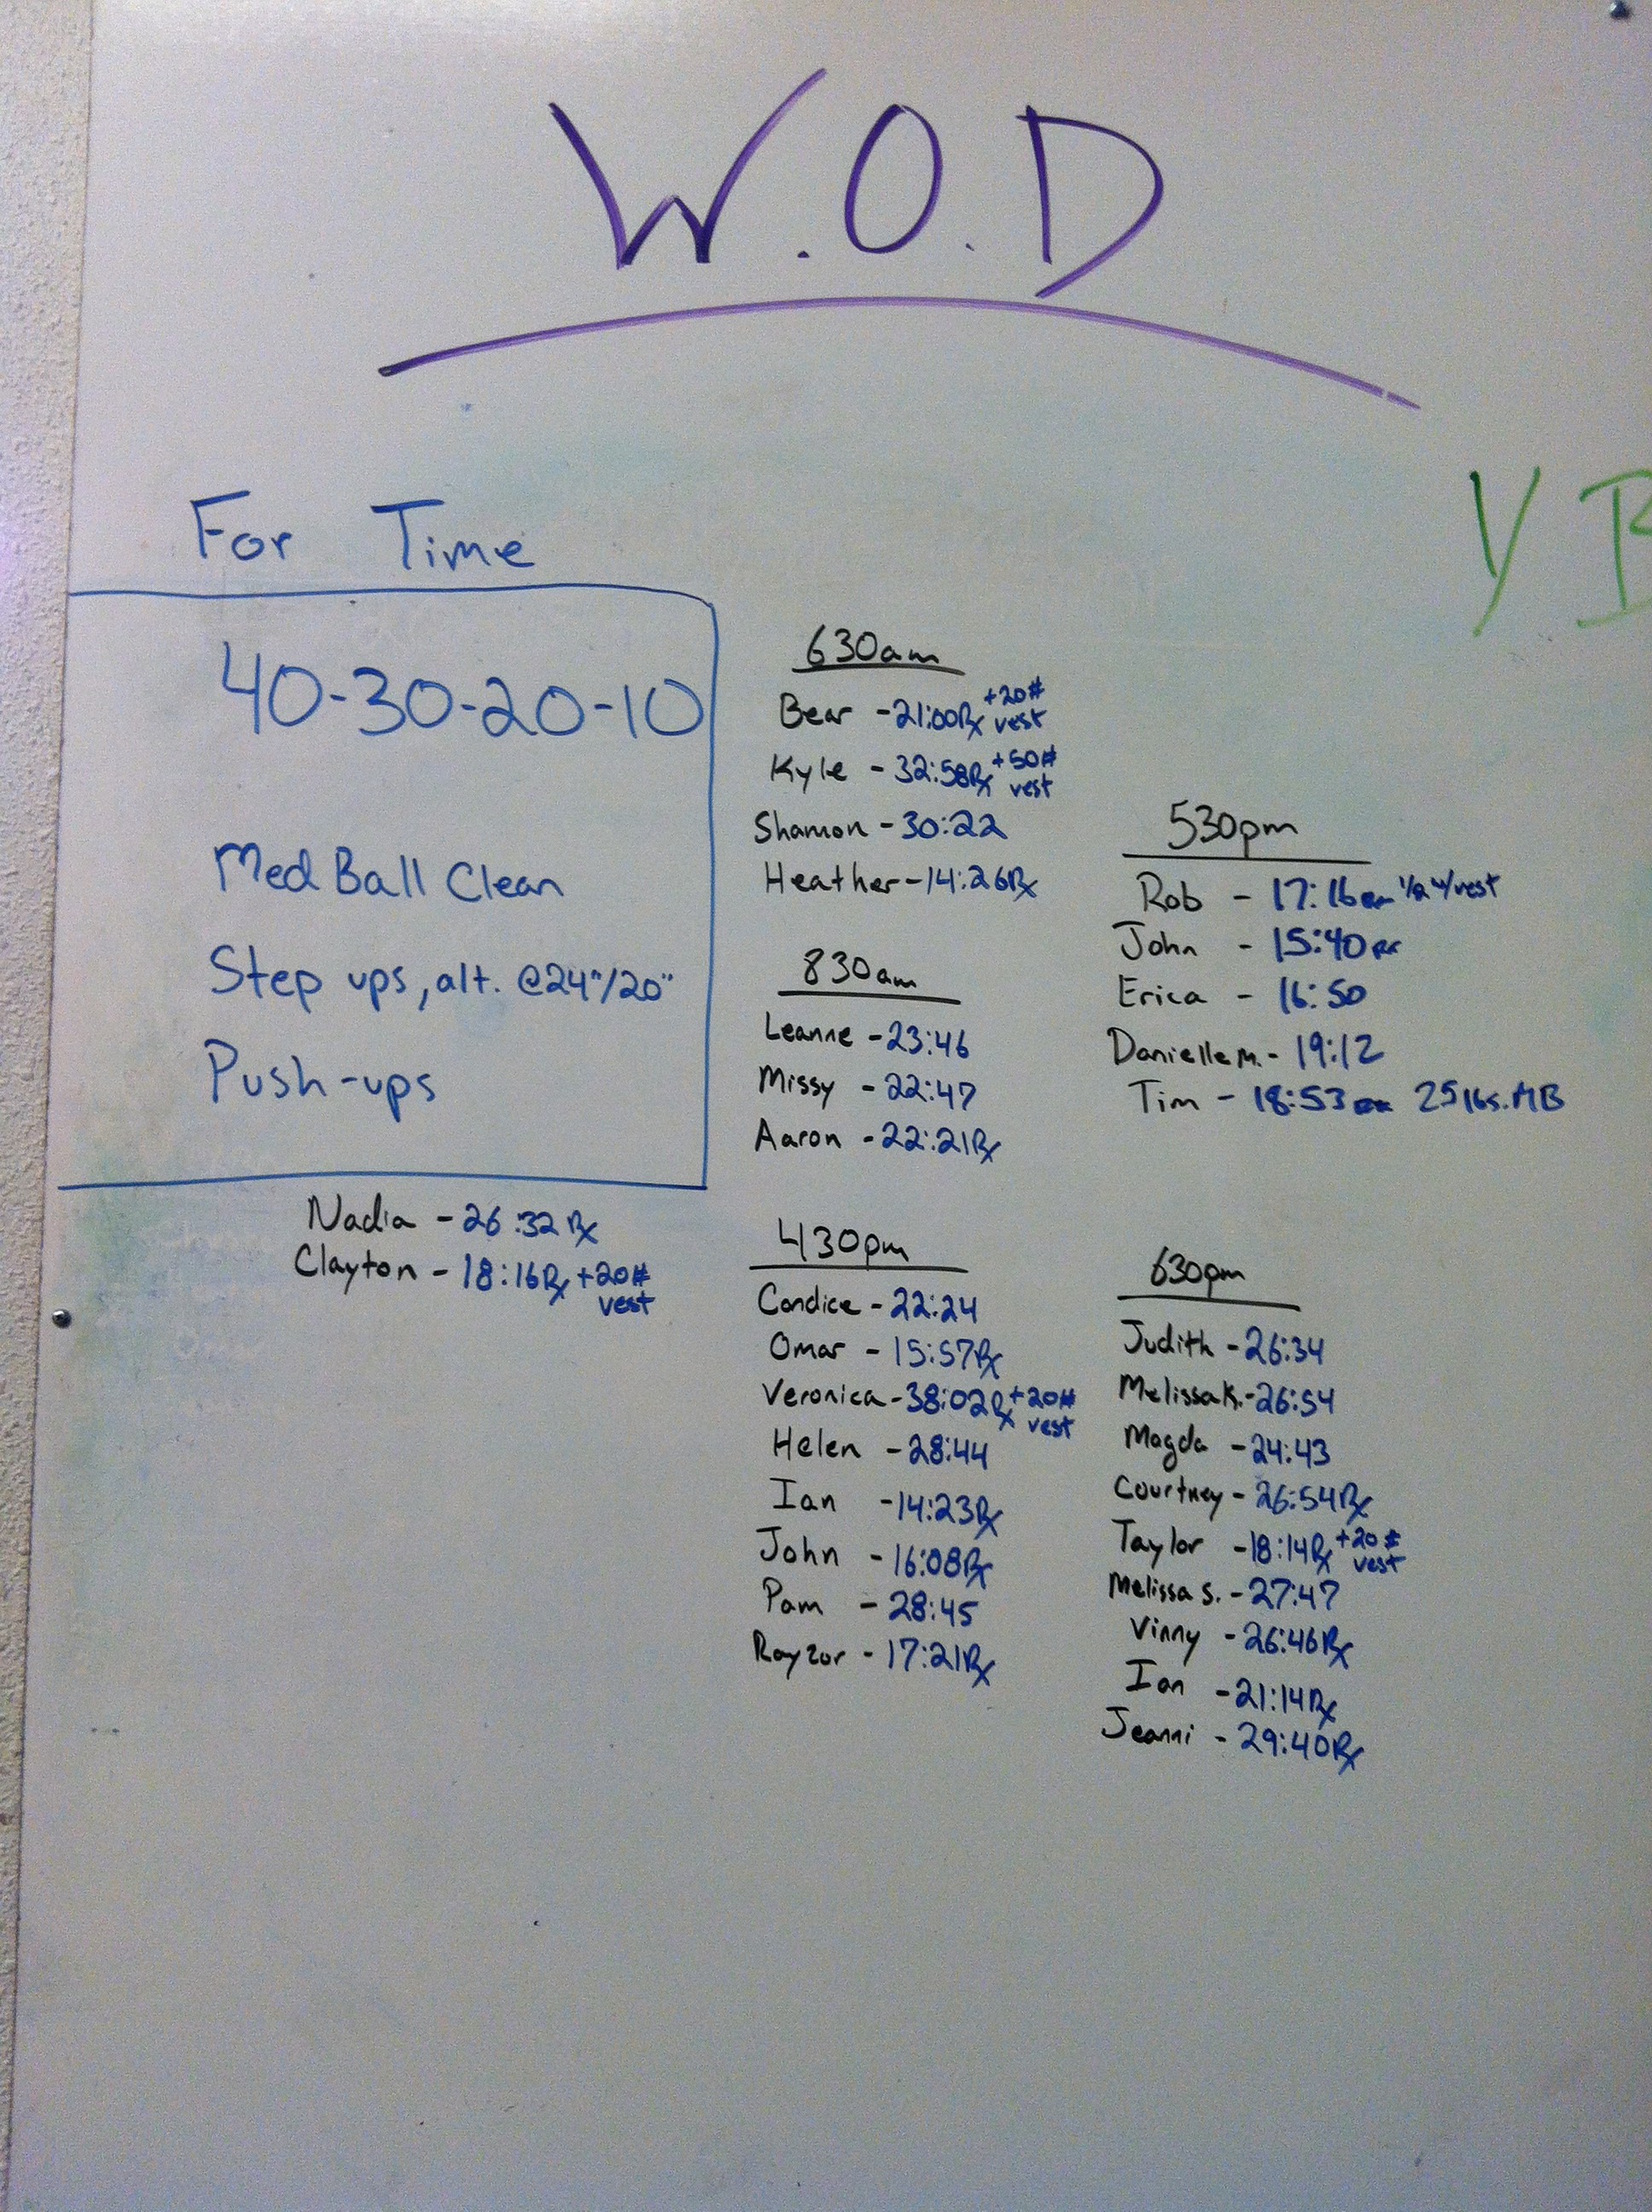 W.O.D
For Time
40-30-20-10
Med Ball Clean
Step ups, alt. @24"/20"
Push-ups
Nadia - 26:32 Rx
Clayton - 18:16 Rx +20# vest
630am
Bear - 21:00 Rx +20# vest
Kyle - 32:58 Rx +50# vest
Shannon - 30:22
Heather - 14:26 Rx
830am
Leanne - 23:46
Missy - 22:47
Aaron - 22:21 Rx
430pm
Candice - 22:24
Omar - 15:57 Rx
Veronica - 38:02 Rx +20# vest
Helen - 28:44
Ian - 14:23 Rx
John - 16:08 Rx
Pam - 28:45
Rayzor - 17:21 Rx
530pm
Rob - 17:16 Rx 1/2 w/vest
John - 15:40 Rx
Erica - 16:50
Danielle M. - 19:12
Tim - 18:53 Rx 25 lbs. MB
630pm
Judith - 26:34
Melissa K. - 26:54
Magda - 24:43
Courtney - 26:54 Rx
Taylor - 18:14 Rx +20# vest
Melissa S. - 27:47
Vinny - 26:46 Rx
Ian - 21:14 Rx
Jeanni - 29:40 Rx
Y B